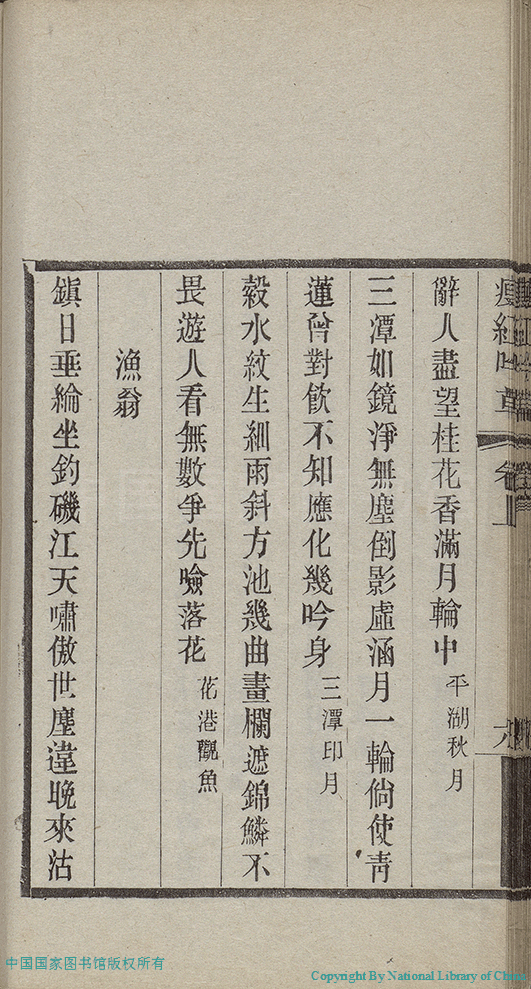 辭人盡望桂花香滿月輪中 平湖秋月
三潭如鏡淨無塵倒影虛涵月一輪倘使青
蓮曾對飲不知應化幾吟身 三潭印月
縠水紋生細雨斜方池幾曲畫欄遮錦鱗不
畏遊人看無數爭先噞落花 花港觀魚
漁翁
鎮日垂綸坐釣磯江天嘯傲世塵違晚來沽
中国国家图书馆版权所有
Copyright By National Library of China